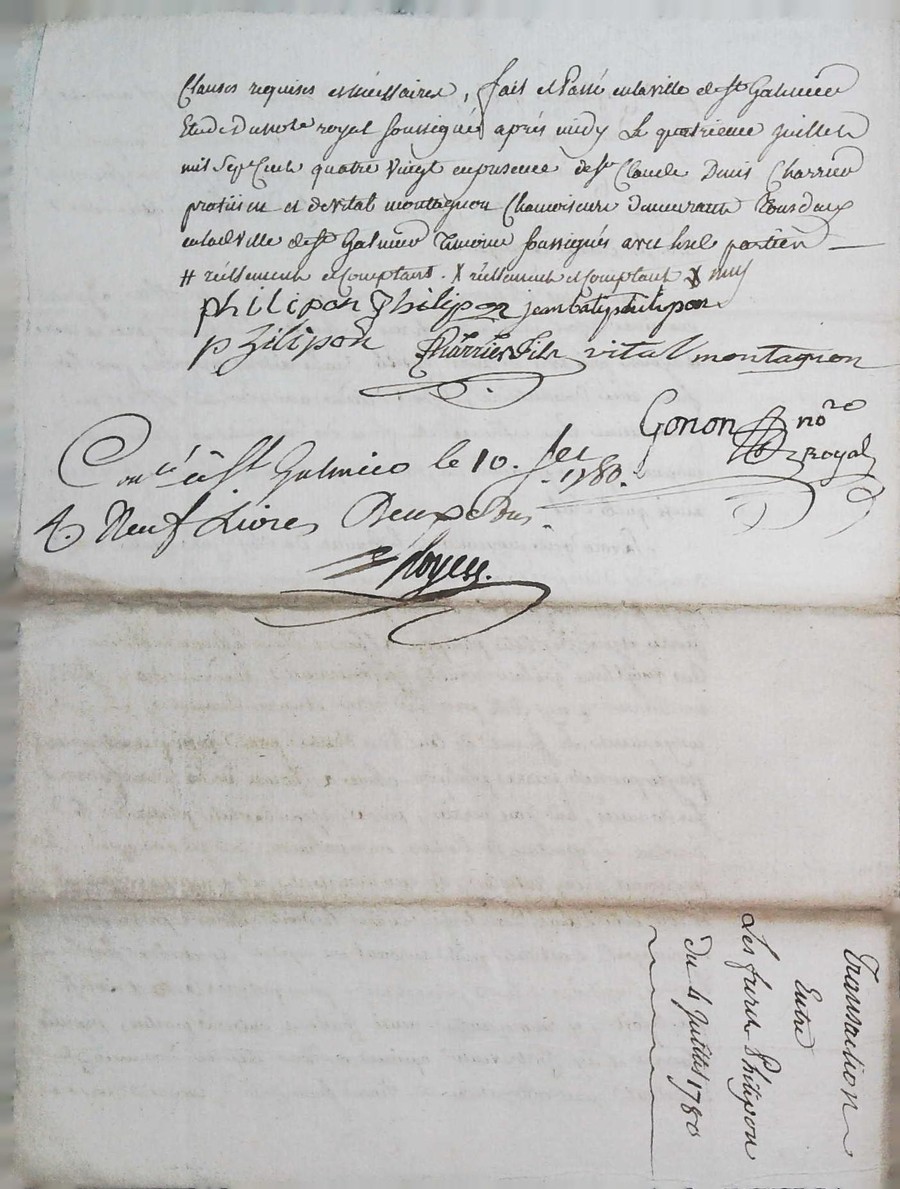 Clauses requises et nécessaires, fait et Passé en la ville de St Galmier
Etude du note royal soussigné après midy Le quatrieme juillet
mil Sept Cent quatre Vingt en presence de Sr Claude Denis Charrier
praticien et de vital montagnon Chamoiseur demeurants tous deux
en lad ville de St Galmier temoins soussignés avec les parties
# réellement et Comptant . X réellement et Comptant X
philipon Philipon jean batip philipon
p zilipon Charrier fils vital montagnon
Gonon nore
royal
Conlé à St Galmier le 10. Jet
1780.
R. Neuf Livres Deux Sous
Royere.
Transaction
Entre
Les freres Philipon
Du 4 Juillet 1780